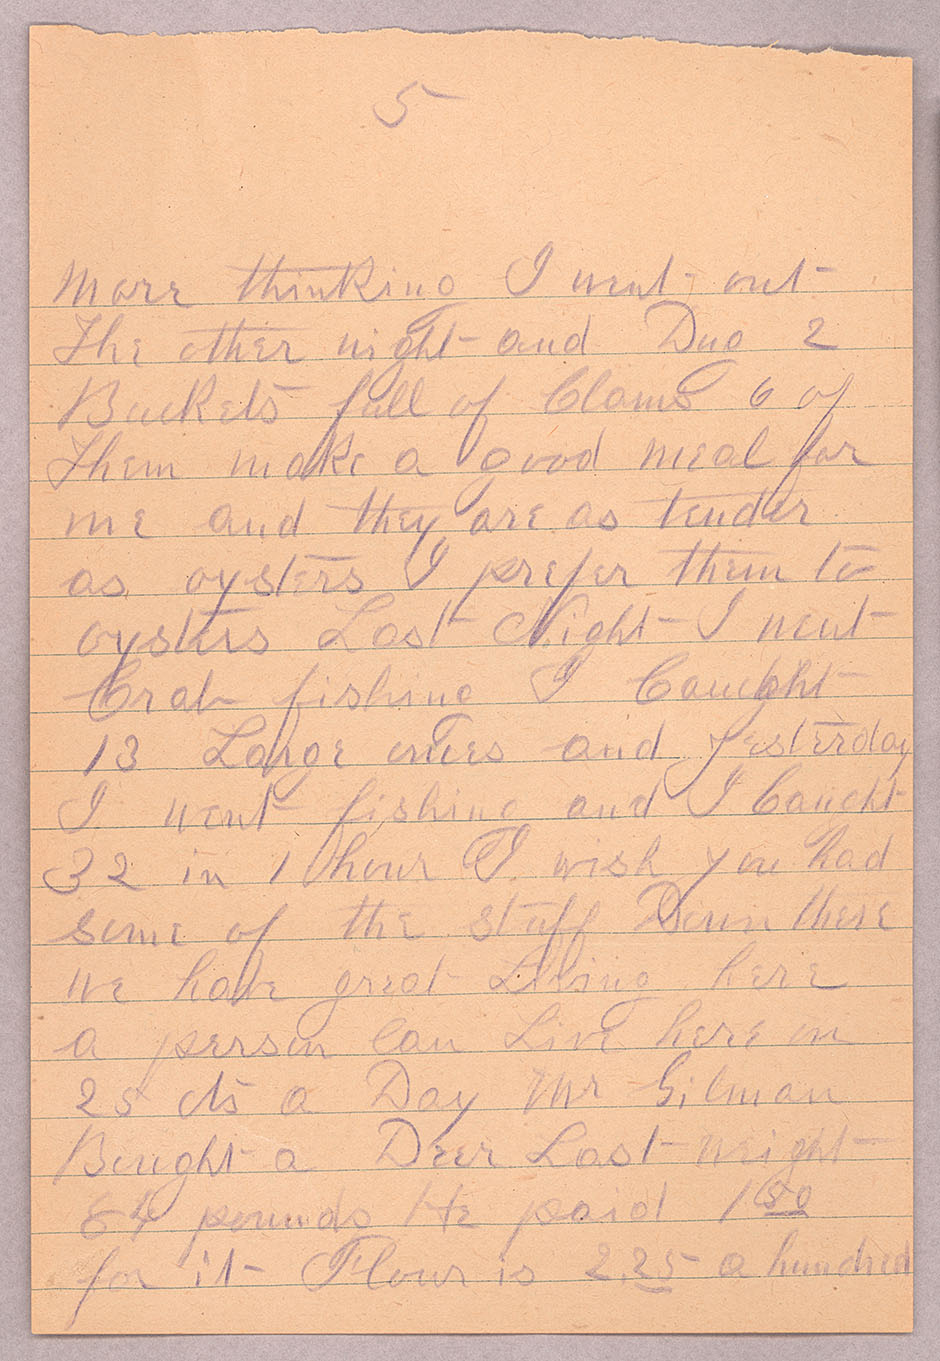 5
More thinking I went out
The other night and Dug 2
Buckets full of Clams 6 of
Them make a good meal for
me and they are as tender
as oysters I prefer them to
oysters Last Night I went
Crab fishing I Caught
13 Large ones and yesterday
I went fishing and I Caught
32 in 1 hour I wish you had
some of the stuff Down there
we have great Living here
a person Can Live here on
25 cts a Day Mr Gilman
Bought a Deer Last
84 pounds He paid 1 50
for it Flour is 2.25 a hundred